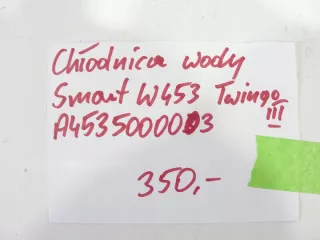 Chłodnica wody
Smart W453 Twingo III
A4535000003
350,-